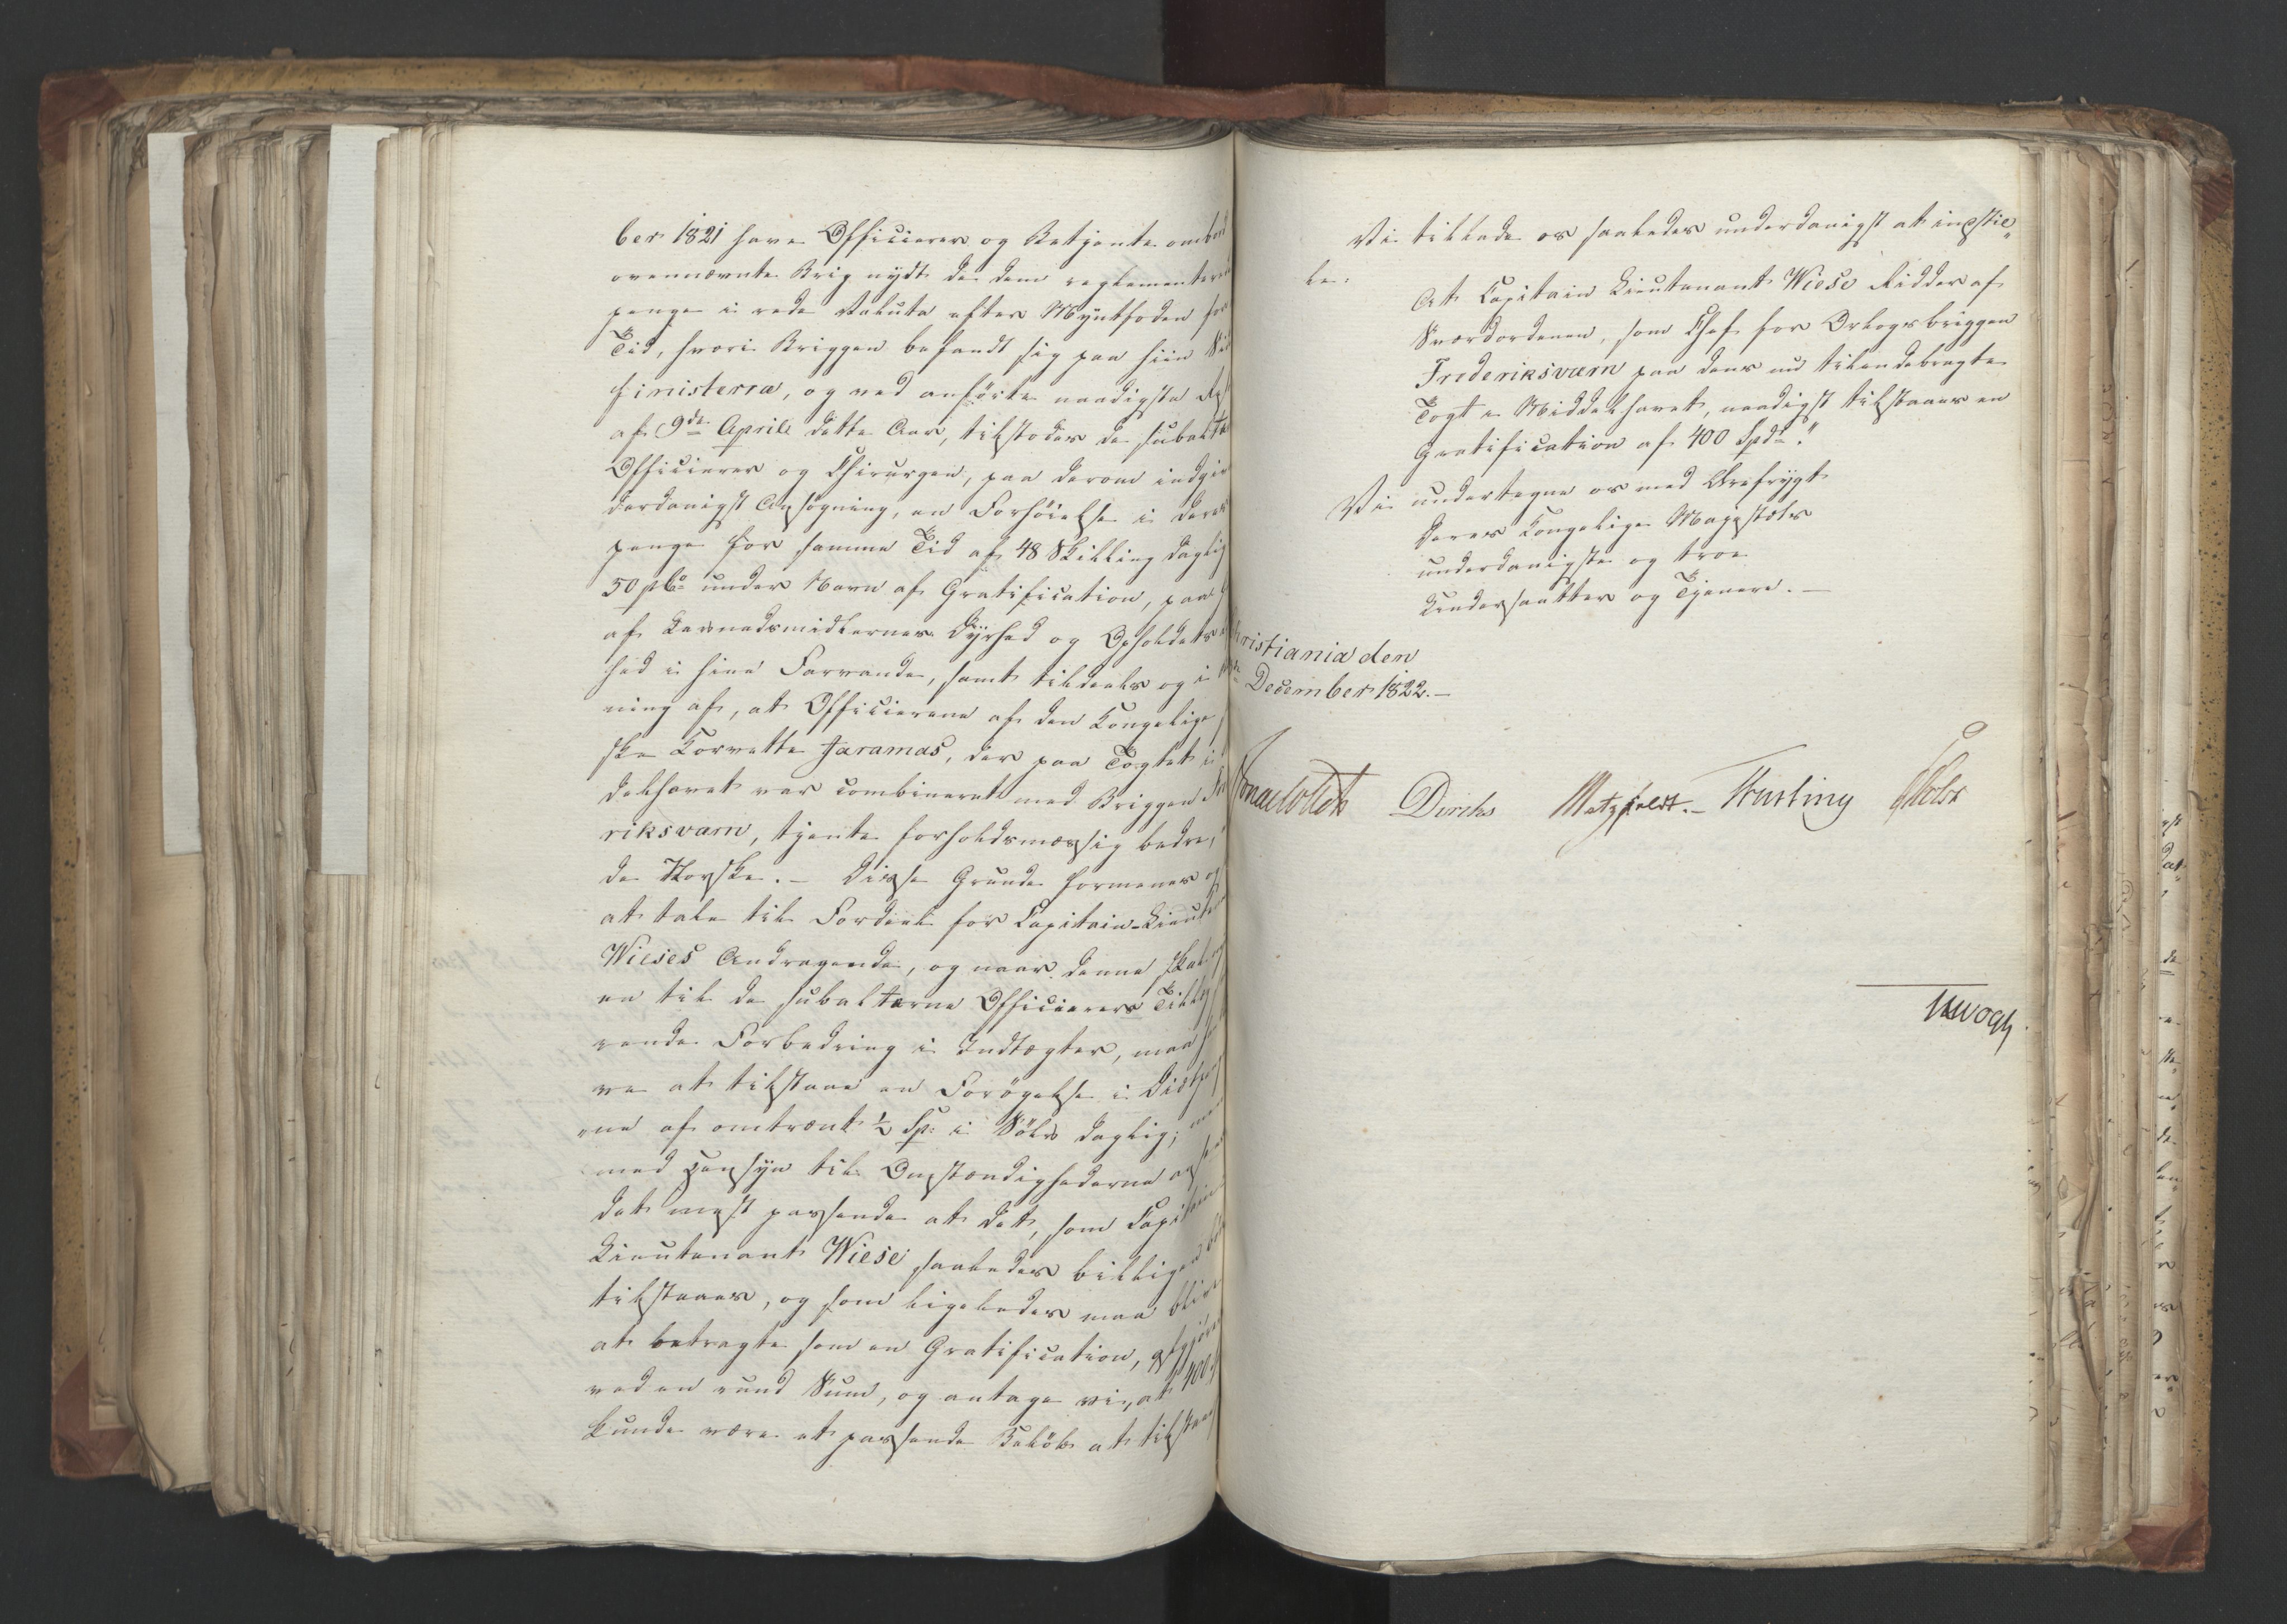 ber 1821 have Officierer og Betjente ombord
ovennævnte Brig nydt de dem reglementerede
penge i rede Valuta efter Myntfoden for
Tid, hvori Briggen befandt sig paa hiin Side
Finisterra, og ved anförte naadigste Res
af 9de Aprile dette Aar, tilstodes de subalte
Officierer og Chirurgen, paa derom indgiv
derdanigst Ansögning, en Forhöielse i deres
penge for samme Tid af 48 Skilling daglig
50 pCo under Navn af Gratification, paa
af Levnedsmidlernes Dyrhed og Opholdets
hed i hine Farvande, samt tildeels og i
ning af, at Officiererne af den Kongelige
ske Corvette Jaramas, der paa Togtet i
delhavet var combineret med Briggen Fre
riksværn, tjente forholdsmæssig bedre,
de Norske. – Disse Grunde formenes og
at tale til Fordeel for Capitain-Lieute
Wieses Andragende, og naar denne skal
en til de subalterne Officierers Tillæg
rende Forbedring i Indtægter, maa
ve at tilstaae en Forögelse i Diætpen
ene af omtrent ½ Sp: i Sölv daglig; men
med Hensyn til Omstændighederne ansees
det meest passende at det, som Capitain
Lieutenant Wiese saaledes billigen bör
tilstaaes, og som ligeledes maa blive
at betragte som en Gratification, afgjöres
ved en rund Sum, og antage vi, at 400
kunde være et passende Belöb at tilstaae
Vi tillade os saaledes underdanigst at indstil„
le:
At Capitain Lieutenant Wiese Ridder af
Sværdordenen, som Chef for Orlogsbriggen
Frederiksværn paa dens nu tilendebragte
Togt i Middelhavet, naadigst tilstaaes en
Gratification af 400 Spd."
Vi undertegne os med Ærefrygt
Deres Kongelige Majestæts
underdanigste og troe
Undersaatter og Tjenere. –
Christiania den
December 1822. –
Diriks Motzfeldt. –